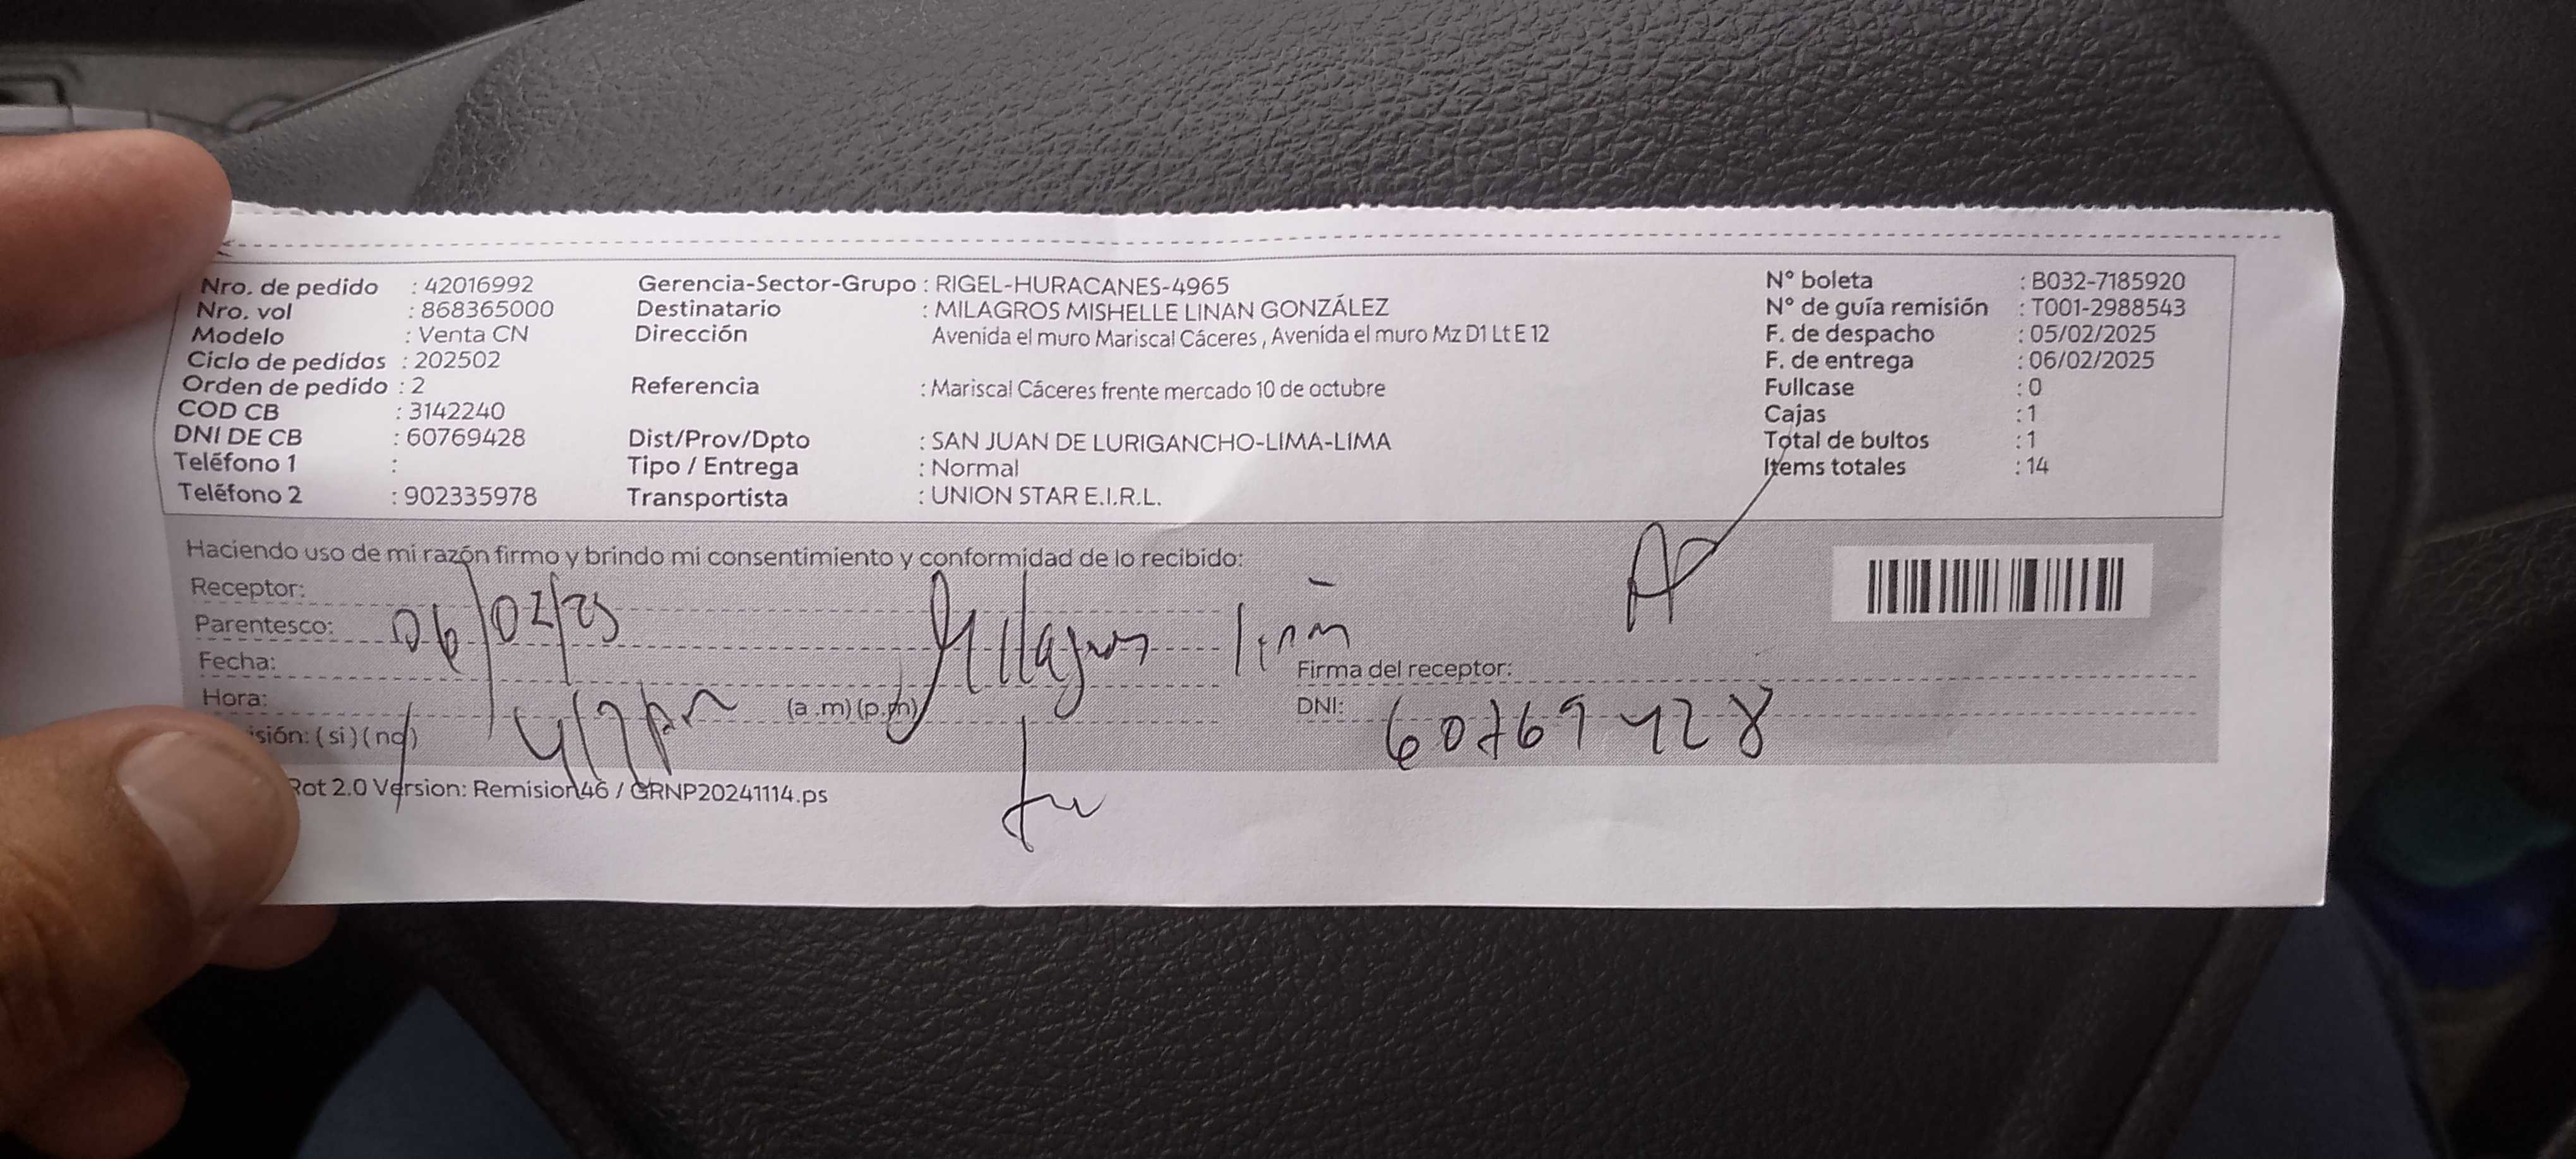 Nro. de pedido : 42016992
Nro. vol : 868365000
Modelo : Venta CN
Ciclo de pedidos : 202502
Orden de pedido : 2
COD CB : 3142240
DNI DE CB : 60769428
Teléfono 1 :
Teléfono 2 : 902335978
Gerencia-Sector-Grupo : RIGEL-HURACANES-4965
Destinatario : MILAGROS MISHELLE LINAN GONZÁLEZ
Dirección Avenida el muro Mariscal Cáceres , Avenida el muro Mz D1 Lt E 12
Referencia : Mariscal Cáceres frente mercado 10 de octubre
Dist/Prov/Dpto : SAN JUAN DE LURIGANCHO-LIMA-LIMA
Tipo / Entrega : Normal
Transportista : UNION STAR E.I.R.L.
N° boleta : B032-7185920
N° de guía remisión : T001-2988543
F. de despacho : 05/02/2025
F. de entrega : 06/02/2025
Fullcase : 0
Cajas : 1
Total de bultos : 1
Items totales : 14
Haciendo uso de mi razón firmo y brindo mi consentimiento y conformidad de lo recibido:
Receptor:
Parentesco: 06/02/25 Milagros liñan
Fecha:
Firma del receptor:
Hora: (a .m) (p.m)
DNI: 60769428
isión: ( si ) ( no )
Rot 2.0 Version: Remision46 / GRNP20241114.ps